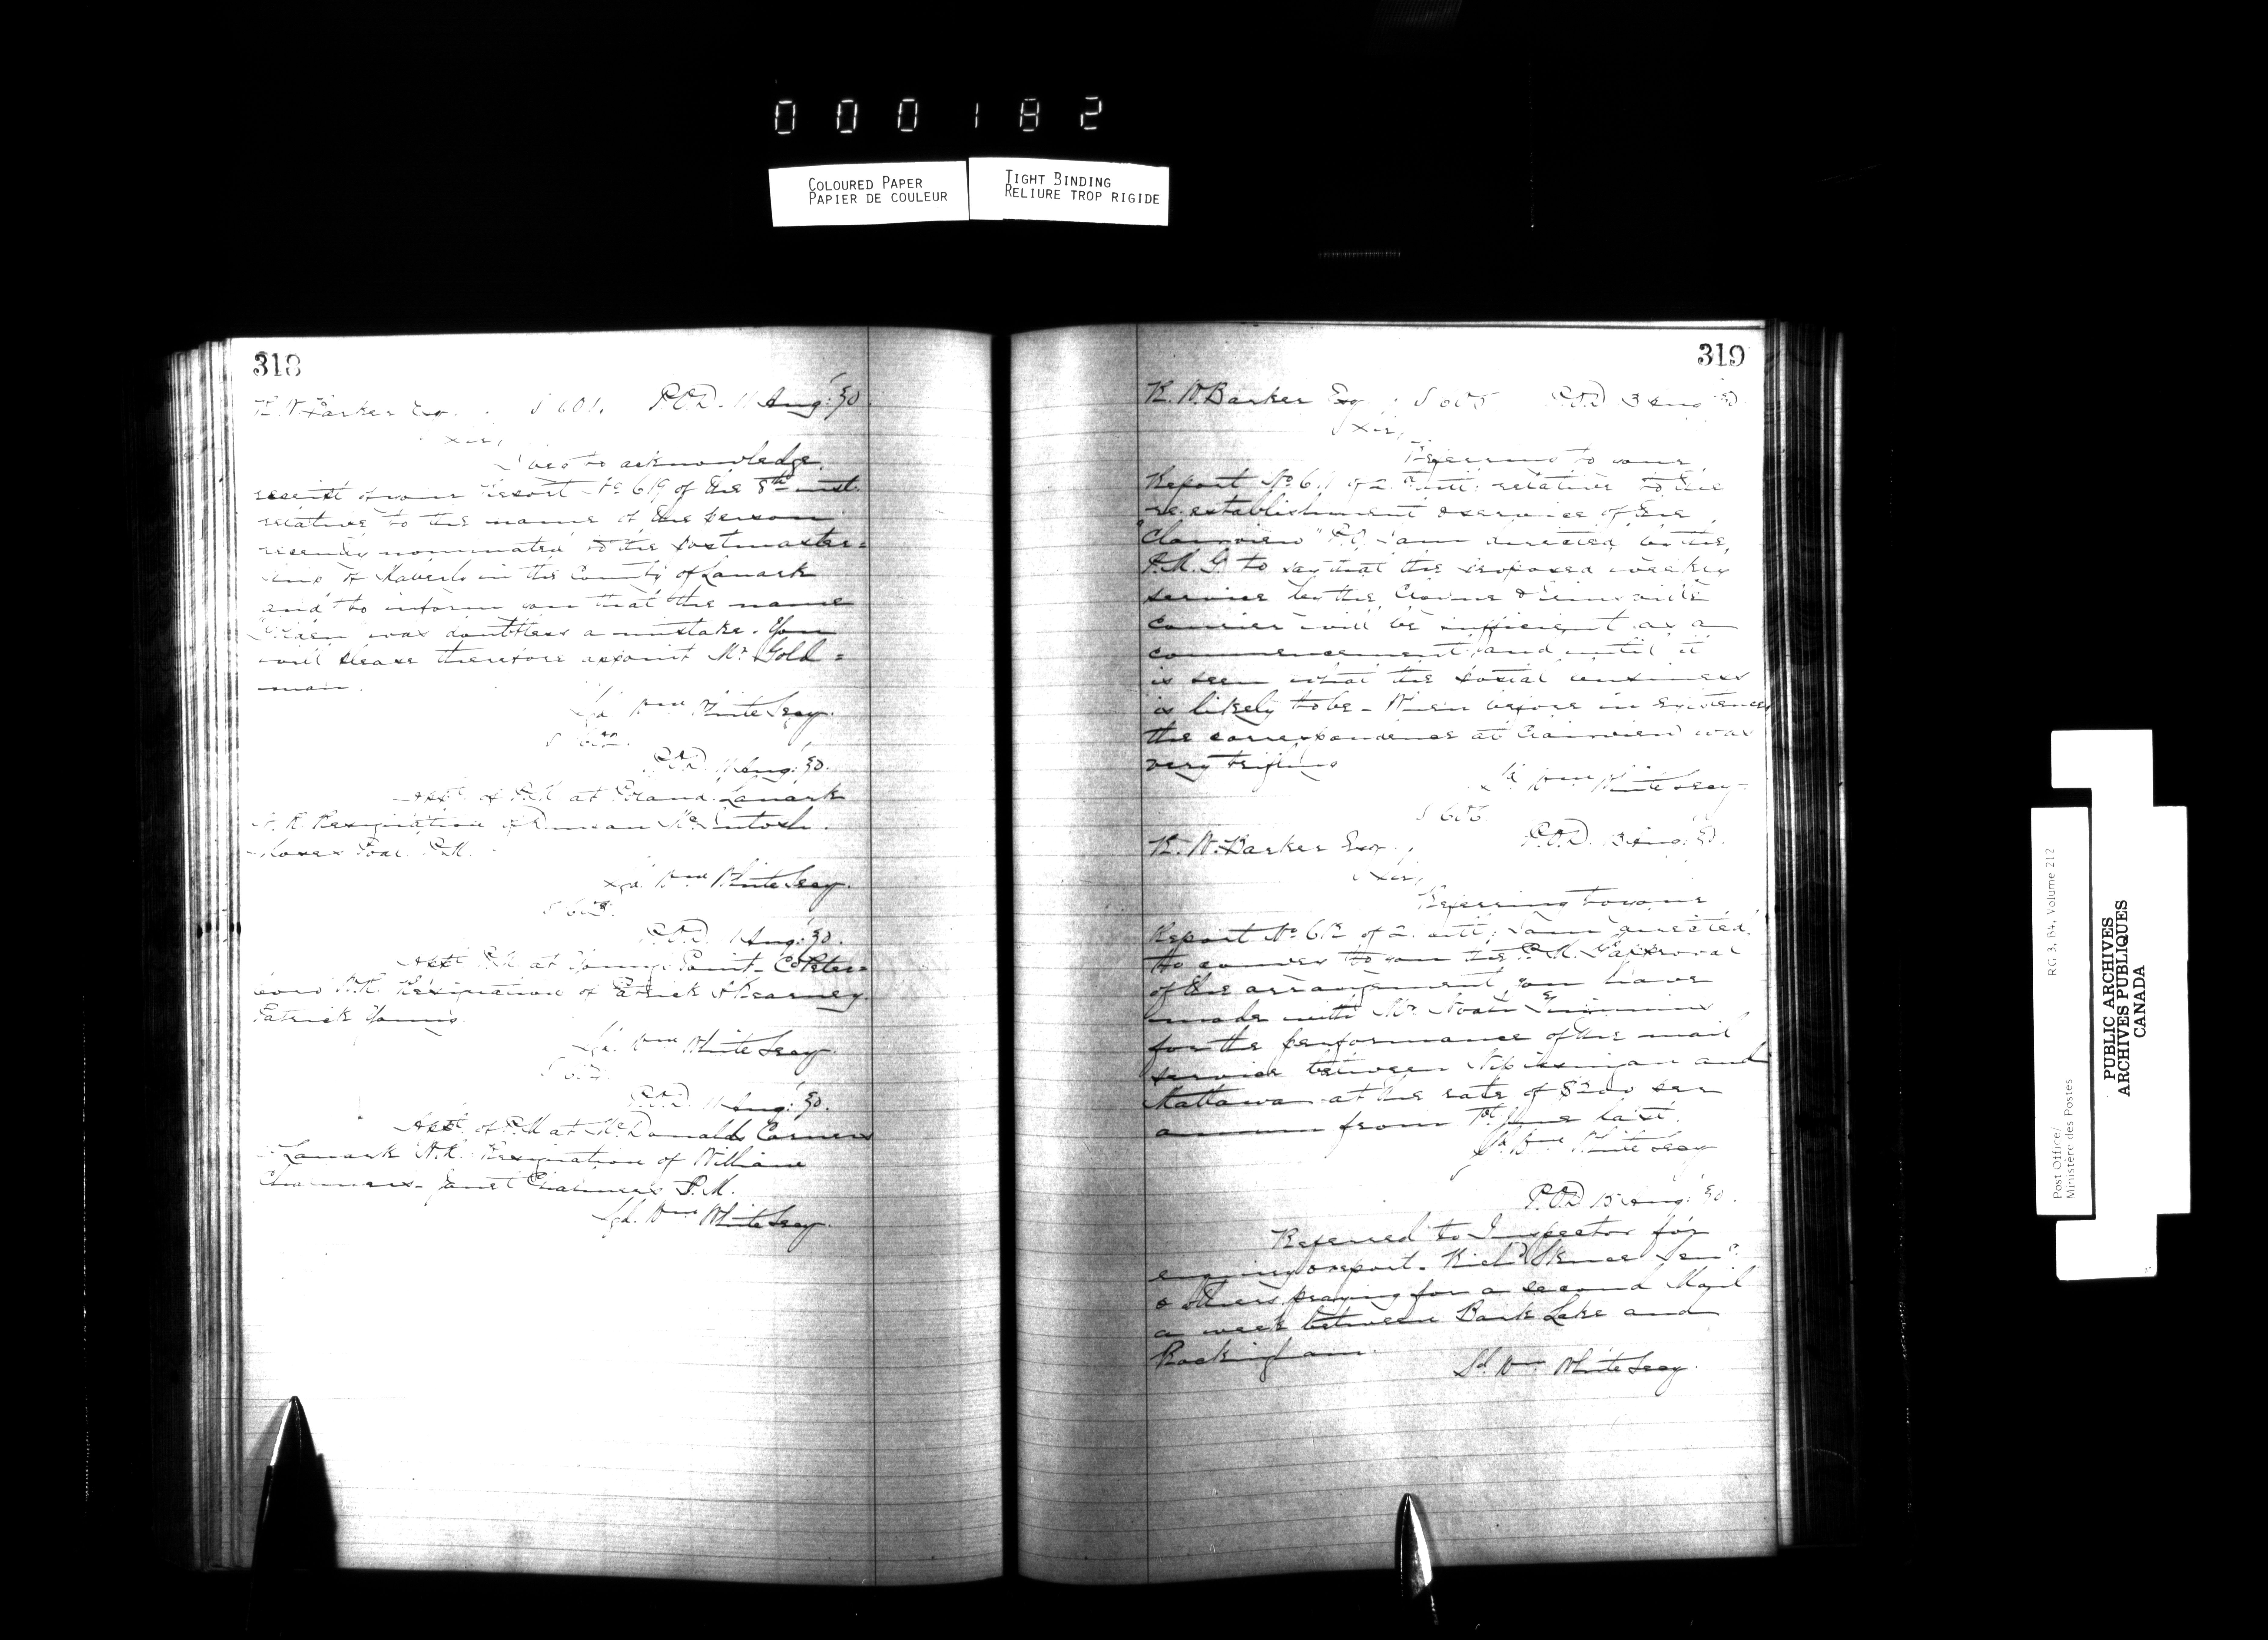 000182
COLOURED PAPER
PAPIER DE COULEUR
TIGHT BINDING
RELIURE TROP RIGIDE
318
R. W. Barker Esq. S 601. P.O.D. 11 Aug: '80.
Sir,
I beg to acknowledge
receipt of your Report No 619 of the 8th inst.
relative to the name of the person
recently nominated to the Postmaster=
ship of in the County of Lanark
and to inform you that the name
was doubtless a mistake. You
will please therefore appoint Mr. Gold=
man.
Sgd. Wm White Secy.
S 602.
P.O.D. 11 Aug: '80.
Appt. of P.M at Poland Lanark
N. R. Resignation of Duncan McIntosh.
P.M.
Sgd. Wm White Secy.
S 603.
P.O.D. 11 Aug: '80.
Appt. P.M at Youngs Point - Co Peter=
boro Resignation of Patrick Kearney.
Patrick Young
Sgd. Wm White Secy.
P.O.D. 11 Aug: '80.
Appt. of P.M at McDonalds Corners
Lanark N.R. Resignation of William
Chalmers - Janet Chalmers P.M.
Sgd. Wm White Secy.
319
R. W. Barker Esq. S 605. P.O.D 13 Aug '80
Sir,
Referring to your
Report No 611 of 2 ulti: relative to the
re-establishment & service of the
"Clairview" P.O. I am directed by the
P.M.G. to say that the proposed weekly
service by the &
Courier will be sufficient as a
commencement and until it
is seen what the postal business
is likely to be - When before in existence
the correspondence at Clairview was
very trifling
Sd Wm White Secy-
S 606
R. W. Barker Esq. P.O.D. 13 Aug: '80.
Sir,
Referring to your
Report No 612 of 2 ulti: I am directed
to convey to you the P.M.G's approval
of the arrangement you have
made with Mr. Noah Timmins
for the performance of the mail
service between Nipissingan and
Mattawa at the rate of $200 per
annum from 1st June last.
Sd. Wm White Secy
P.O.D 13 Aug: '80.
Referred to Inspector for
enquiry & report - Richd Senr
& others praying for a second Mail
a week between Bark Lake and
Rockingham.
Sd. Wm White Secy.
Post Office/
Ministère des Postes
RG 3, B4, Volume 212
PUBLIC ARCHIVES
ARCHIVES PUBLIQUES
CANADA